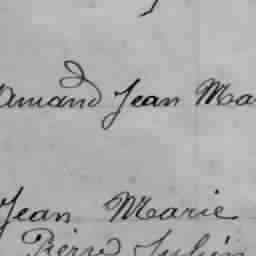 Amand Jean Ma
Jean Marie
Pierre Julien